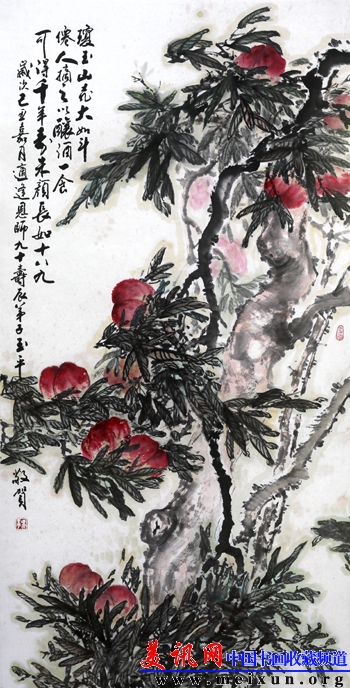 瓊玉山大如斗
僊人摘之以釀酒一食
可得千年寿朱顔長如十八九
歲次己丑嘉月適逢恩師九十壽辰弟子玉平
敬賀
美讯网
中国书画收藏频道
www.meixun.org